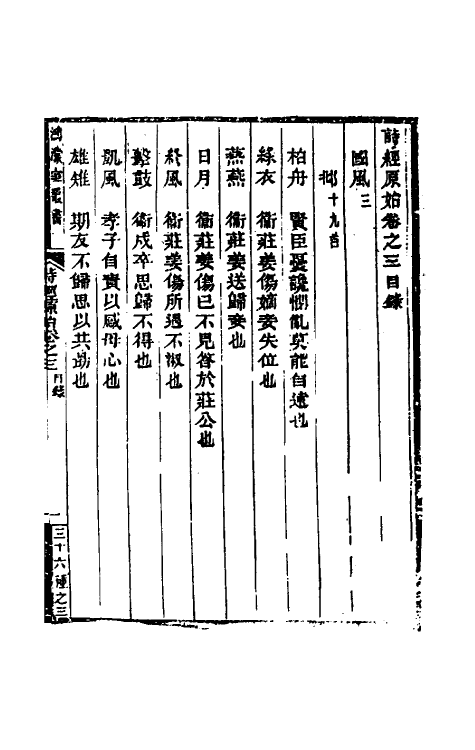 詩經原始卷之三目錄
國風三
邶十九首
柏舟　賢臣憂讒憫亂莫能自達也
綠衣　衞莊姜傷嫡妾失位也
燕燕　衞莊姜送歸妾也
日月　衞莊姜傷己不見答於莊公也
終風　衞莊姜傷所遇不淑也
擊鼓　衞戍卒思歸不得也
凱風　孝子自責以感母心也
雄雉　期友不歸思以共勗也
鴻濛室叢書
詩經原始卷之三　目錄
一
三十六種之三